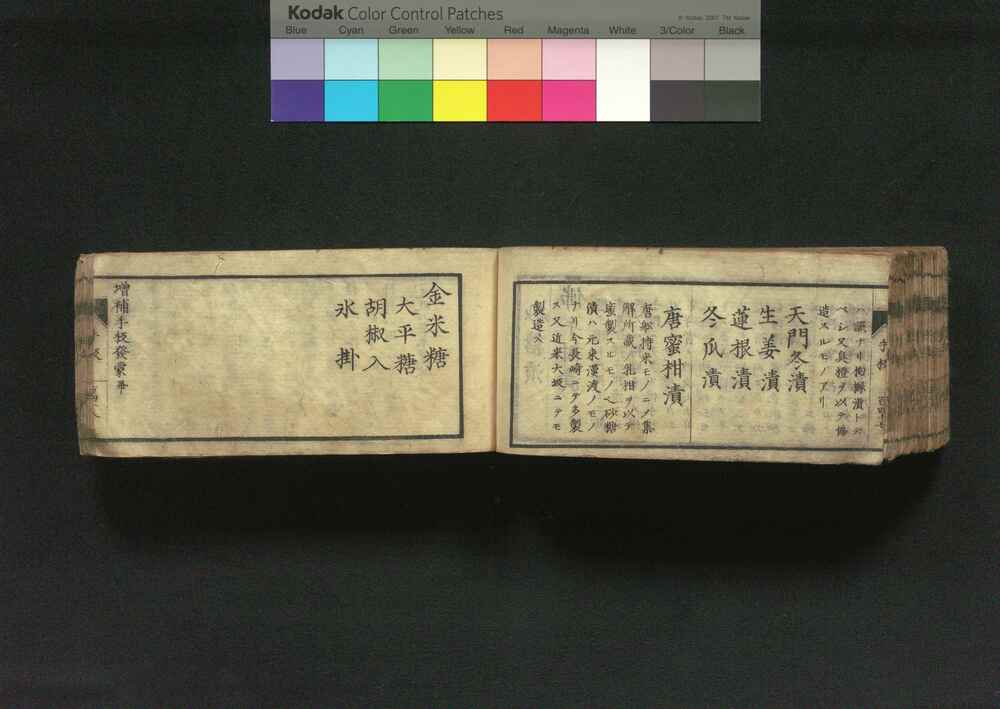 Kodak Color Control Patches
© Kodak, 2007 TM: Kodak
Blue Cyan Green Yellow Red Magenta White 3/Color Black
造スルモノアリ
天門冬漬
生姜漬
蓮根漬
冬瓜漬
唐蜜柑漬
唐舩持来モノニメ集
解所載ノ乳柑ヲ以テ
蜜製スルモノ
漬ハ元来漢渡ノモノ
ナリ今長崎ニテ多製
ス又近来大坂ニテモ
製造ス
金米糖
大平糖
胡椒入
氷掛
増補手板發蒙